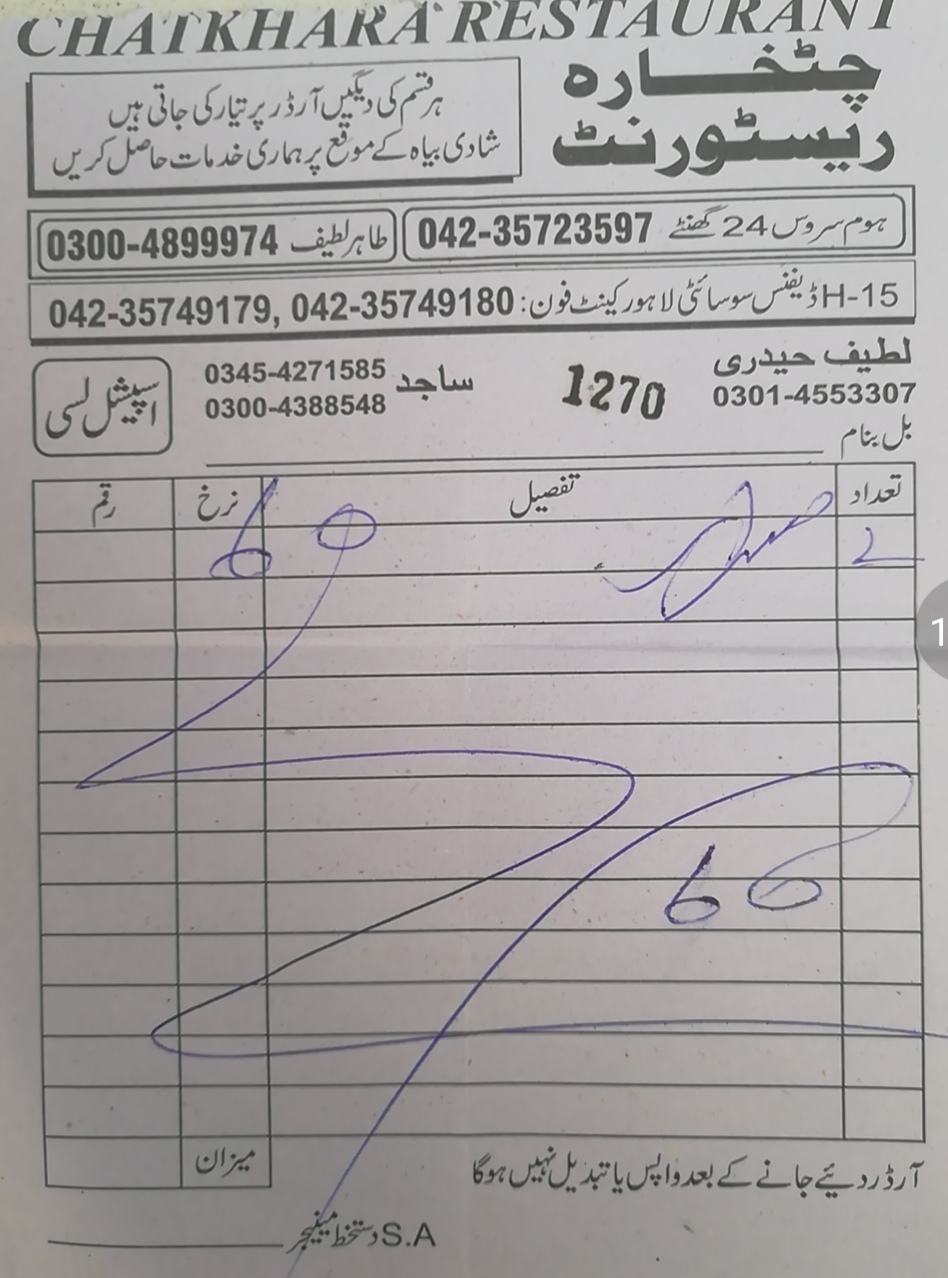 CHATKHARA RESTAURANT
چٹخارہ
ریسٹورنٹ
ہر قسم کی دیگیں آرڈر پر تیار کی جاتی ہیں
شادی بیاہ کے موقع پر ہماری خدمات حاصل کریں
ہوم سروس 24 گھنٹے 042-35723597
طاہر لطیف 0300-4899974
15-H ڈیفنس سوسائٹی لاہور کینٹ فون: 042-35749179, 042-35749180
لطیف حیدری
0301-4553307
1270
ساجد 0345-4271585
0300-4388548
اسپیشل لسی
بل بنام
تعداد تفصیل نرخ رقم
2 60
60
میزان
آرڈر دئیے جانے کے بعد واپس یا تبدیل نہیں ہوگا
S.A دستخط مینیجر
1